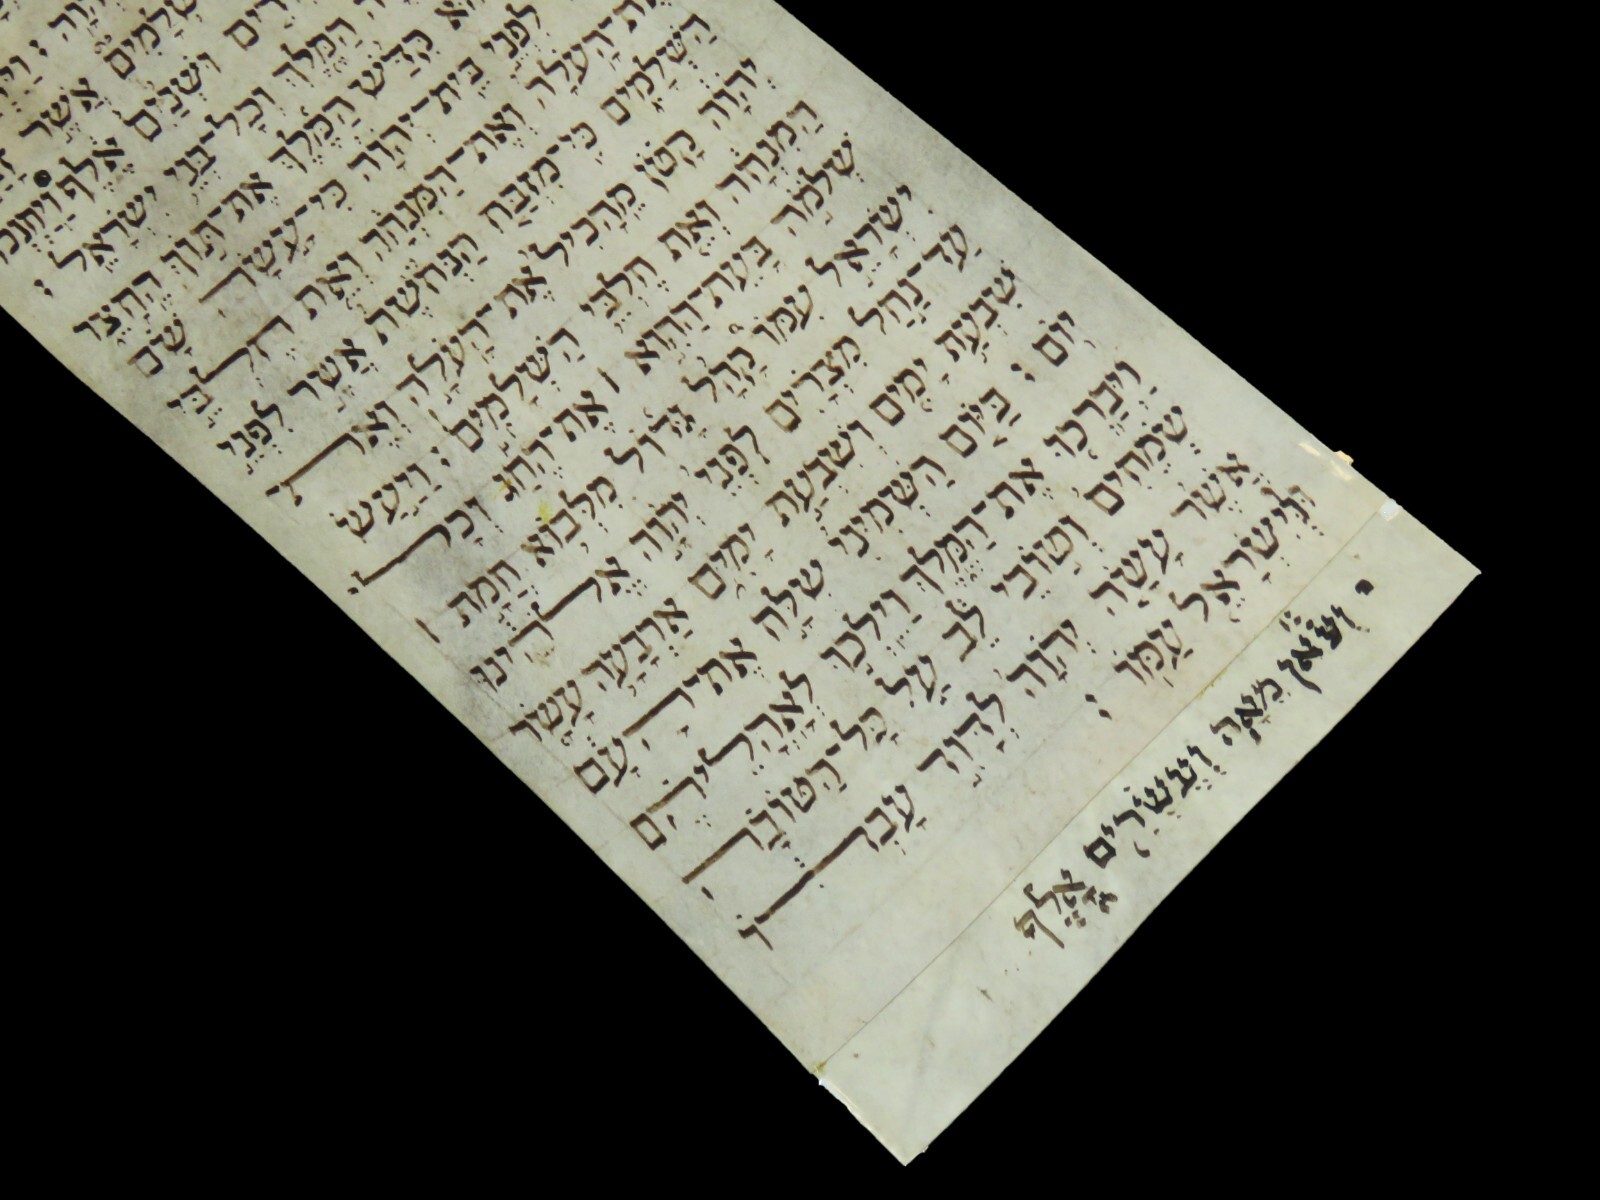 שְׁלָמִים אֲשֶׁר
וּשְׁנַיִם אֶלֶף וַיַּחְנְכוּ
הַמֶּלֶךְ וְכָל־בְּנֵי יִשְׂרָאֵל :
קִדַּשׁ הַמֶּלֶךְ אֶת־תּוֹךְ הֶחָצֵר
לִפְנֵי בֵית־יְהֹוָה כִּי־עָשָׂה שָׁם
אֶת־הָעֹלָה וְאֶת־הַמִּנְחָה וְאֵת חֶלְבֵי
הַשְּׁלָמִים כִּי־מִזְבַּח הַנְּחֹשֶׁת אֲשֶׁר לִפְנֵי
יְהֹוָה קָטֹן מֵהָכִיל אֶת־הָעֹלָה וְאֶת
הַמִּנְחָה וְאֵת חֶלְבֵי הַשְּׁלָמִים : וַיַּעַשׂ
שְׁלֹמֹה בָּעֵת־הַהִוא | אֶת־הֶחָג וְכָל
יִשְׂרָאֵל עִמּוֹ קָהָל גָּדוֹל מִלְּבוֹא חֲמָת
עַד־נַחַל מִצְרַיִם לִפְנֵי יְהֹוָה אֱלֹהֵינוּ
שִׁבְעַת יָמִים וְשִׁבְעַת יָמִים אַרְבָּעָה עָשָׂר
יוֹם : בַּיּוֹם הַשְּׁמִינִי שִׁלַּח אֶת־הָעָם
וַיְבָרְכוּ אֶת־הַמֶּלֶךְ וַיֵּלְכוּ לְאָהֳלֵיהֶם
שְׂמֵחִים וְטוֹבֵי לֵב עַל כָּל־הַטּוֹבָה
אֲשֶׁר עָשָׂה יְהֹוָה לְדָוִד עַבְדּוֹ
וּלְיִשְׂרָאֵל עַמּוֹ :
וְצֹאן מֵאָה וְעֶשְׂרִים אָלֶף